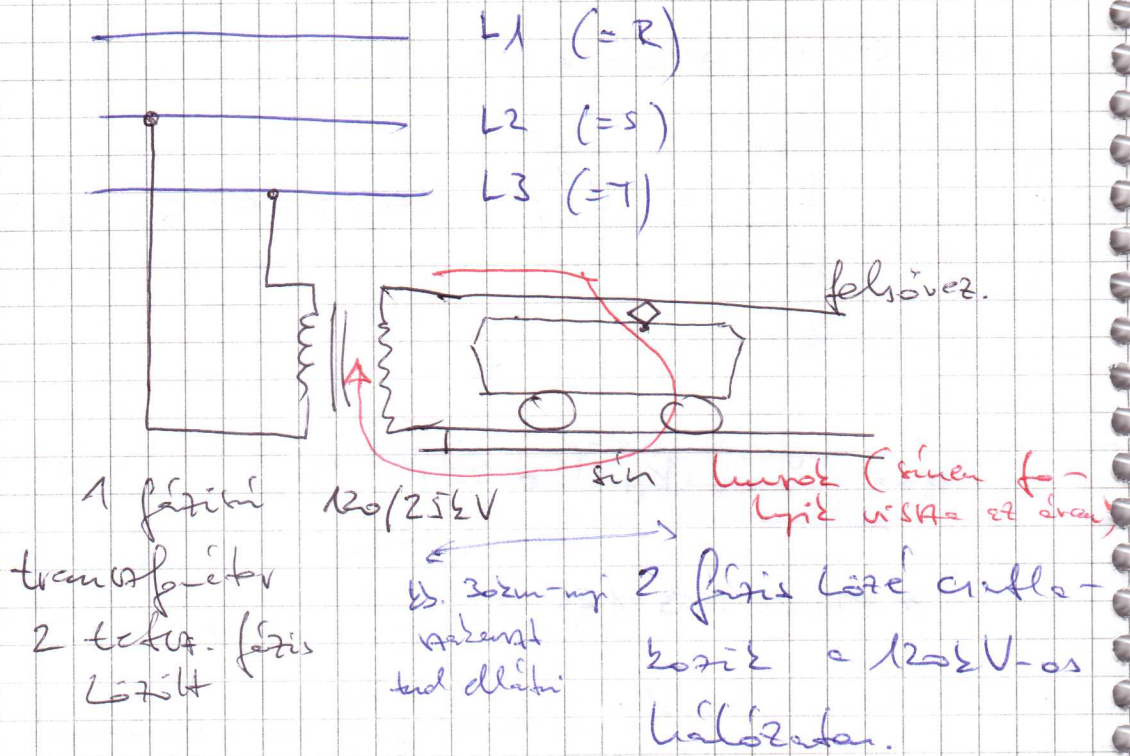 L1 (=R)
L2 (=S)
L3 (=T)
felsővez.
sín
hurok (sínen fo-
lyik vissza az áram)
1 fázisú
120/25kV
transzformátor
2 tetsz. fázis
között
kb. 30km-nyi
szakaszt
tud ellátni
2 fázis közé csatla-
kozik a 120kV-os
hálózaton.